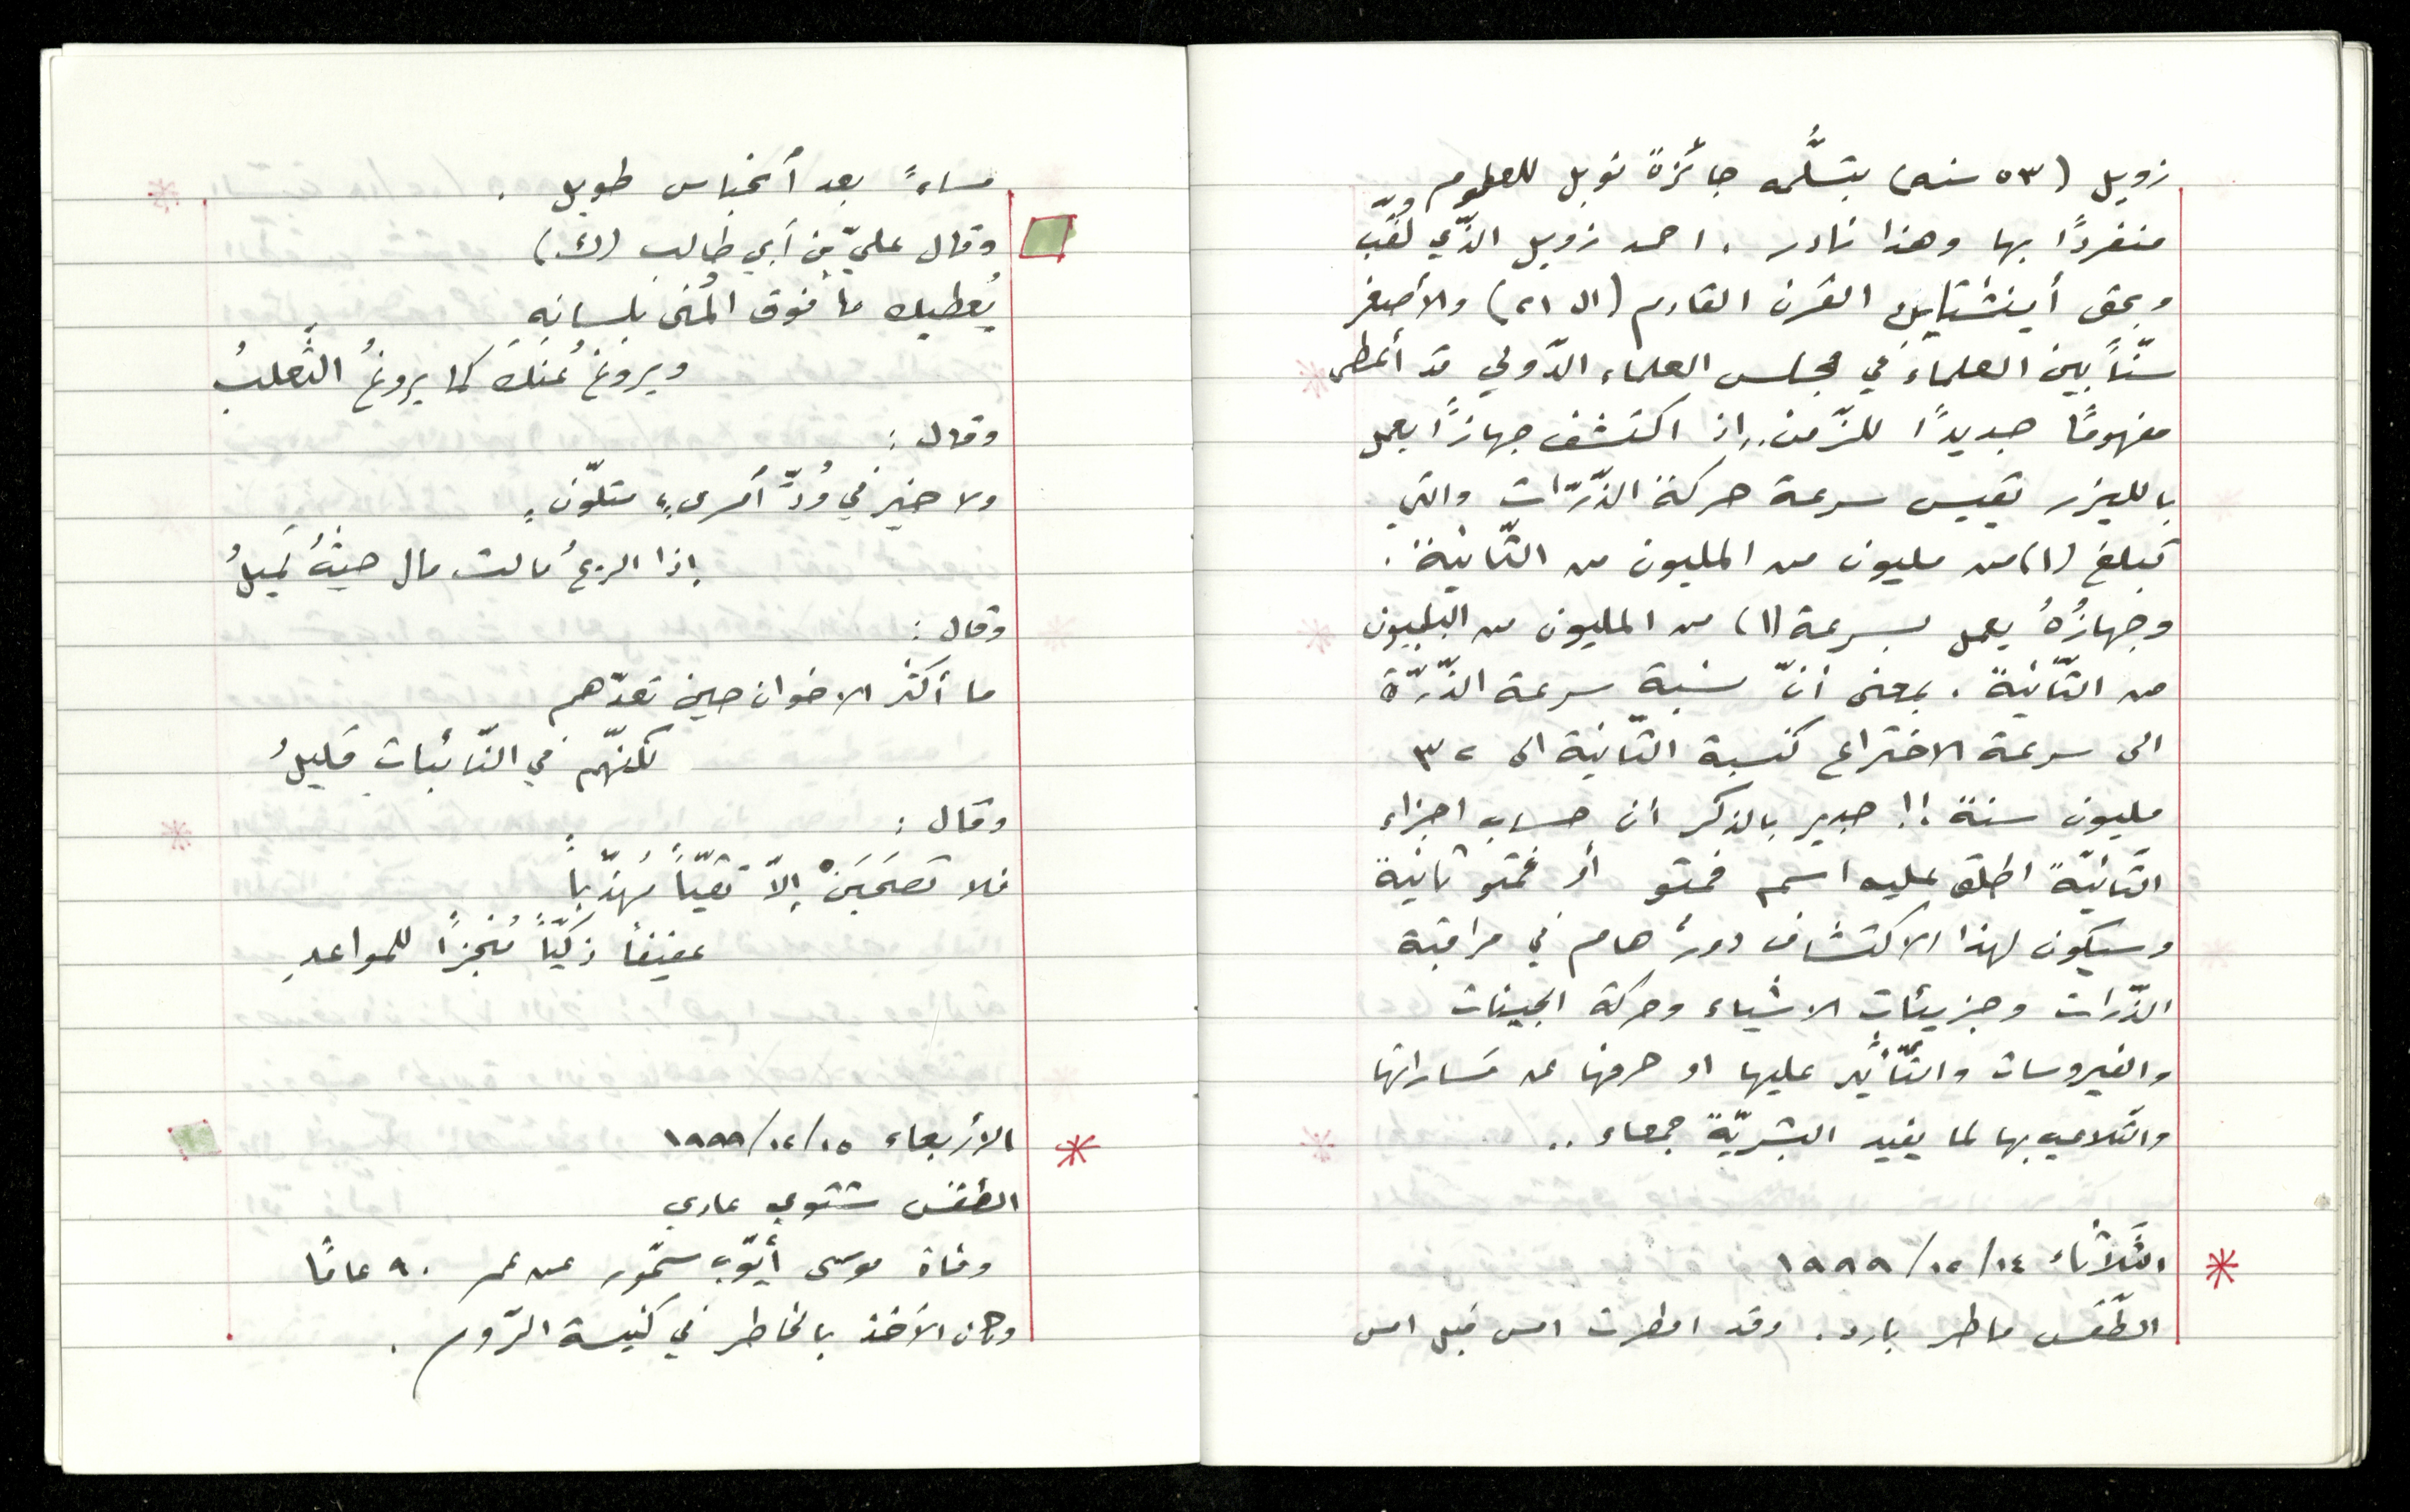 زويل (٥٣ سنه) بتسلّمه جائزة نوبل للعلوم
منفردًا بها وهذا نادر . احمد زويل الذّي لُقّب
وبحق أينشتاين القرن القادم (ال ٢١) والأصغر
سنّاً بين العلماء في مجلس العلماء الدّولي قد أعطى
مفهومًا جديدًا للزّمن.. إذ اكتشف جهازًا يعمل
بالليزر تقيس سرعة حركة الذّرّات والتي
تبلغ (١) من مليون من المليون من الثّانية .
وجهازُهُ يعمل بسرعة (١) من المليون من البليون
من الثّانية . بمعنى أنّ نسبة سرعة الذّرّة
الى سرعة الاختراع كنسبة الثّانية الى ٣٢
مليون سنة !! جدير بالذكر ان حساب اجزاء
الثّانيّة اطلق عليه اسم فمتو أو فمتو ثانية
وسيكون لهذا الاكتشاف دورٌ هام في مراقبة
الذّرات وجزيئات الاشياء وحركة الجينات
والفيروسات والتّأثير عليها او حرفها عن مساراتها
والتلاعب بها لما يفيد البشريّة جمعاء ..
الثّلاثاء ١٤/١٢/١٩٩٩
الطّقس ماطر بارد . وقد امطرت امس قبل امس
مساءً بعد أنحباس طويل .
وقال عليّ بن أبي طالب (ك.)
يُعطيك ما فوق المُنى بلسانِهِ
ويروغُ عنكَ كما يروغُ الثّعلبُ
وقال :
ولا خير في وُدّ أمرىءٍ متلوّنٍ
إذا الريحُ مالت مال حيثُ تَميلُ
وقال :
ما أكثر الاخوان حين تعدّهم
لكنّهم في النّائبات قليلُ
وقال :
فلا تصحَبَنْ إلاّ تقيّاً مُهذّباً
عفيفاً زكيّاً مُنجزاً للمواعدِ
الأربعاء ١٥/١٢/١٩٩٩
الطقس شتوي عادي
وفاة موسى أيّوب سمّور عن عمر ٩٠ عامًا
وكان الأخذ بالخاطر في كنيسة الرّوم .